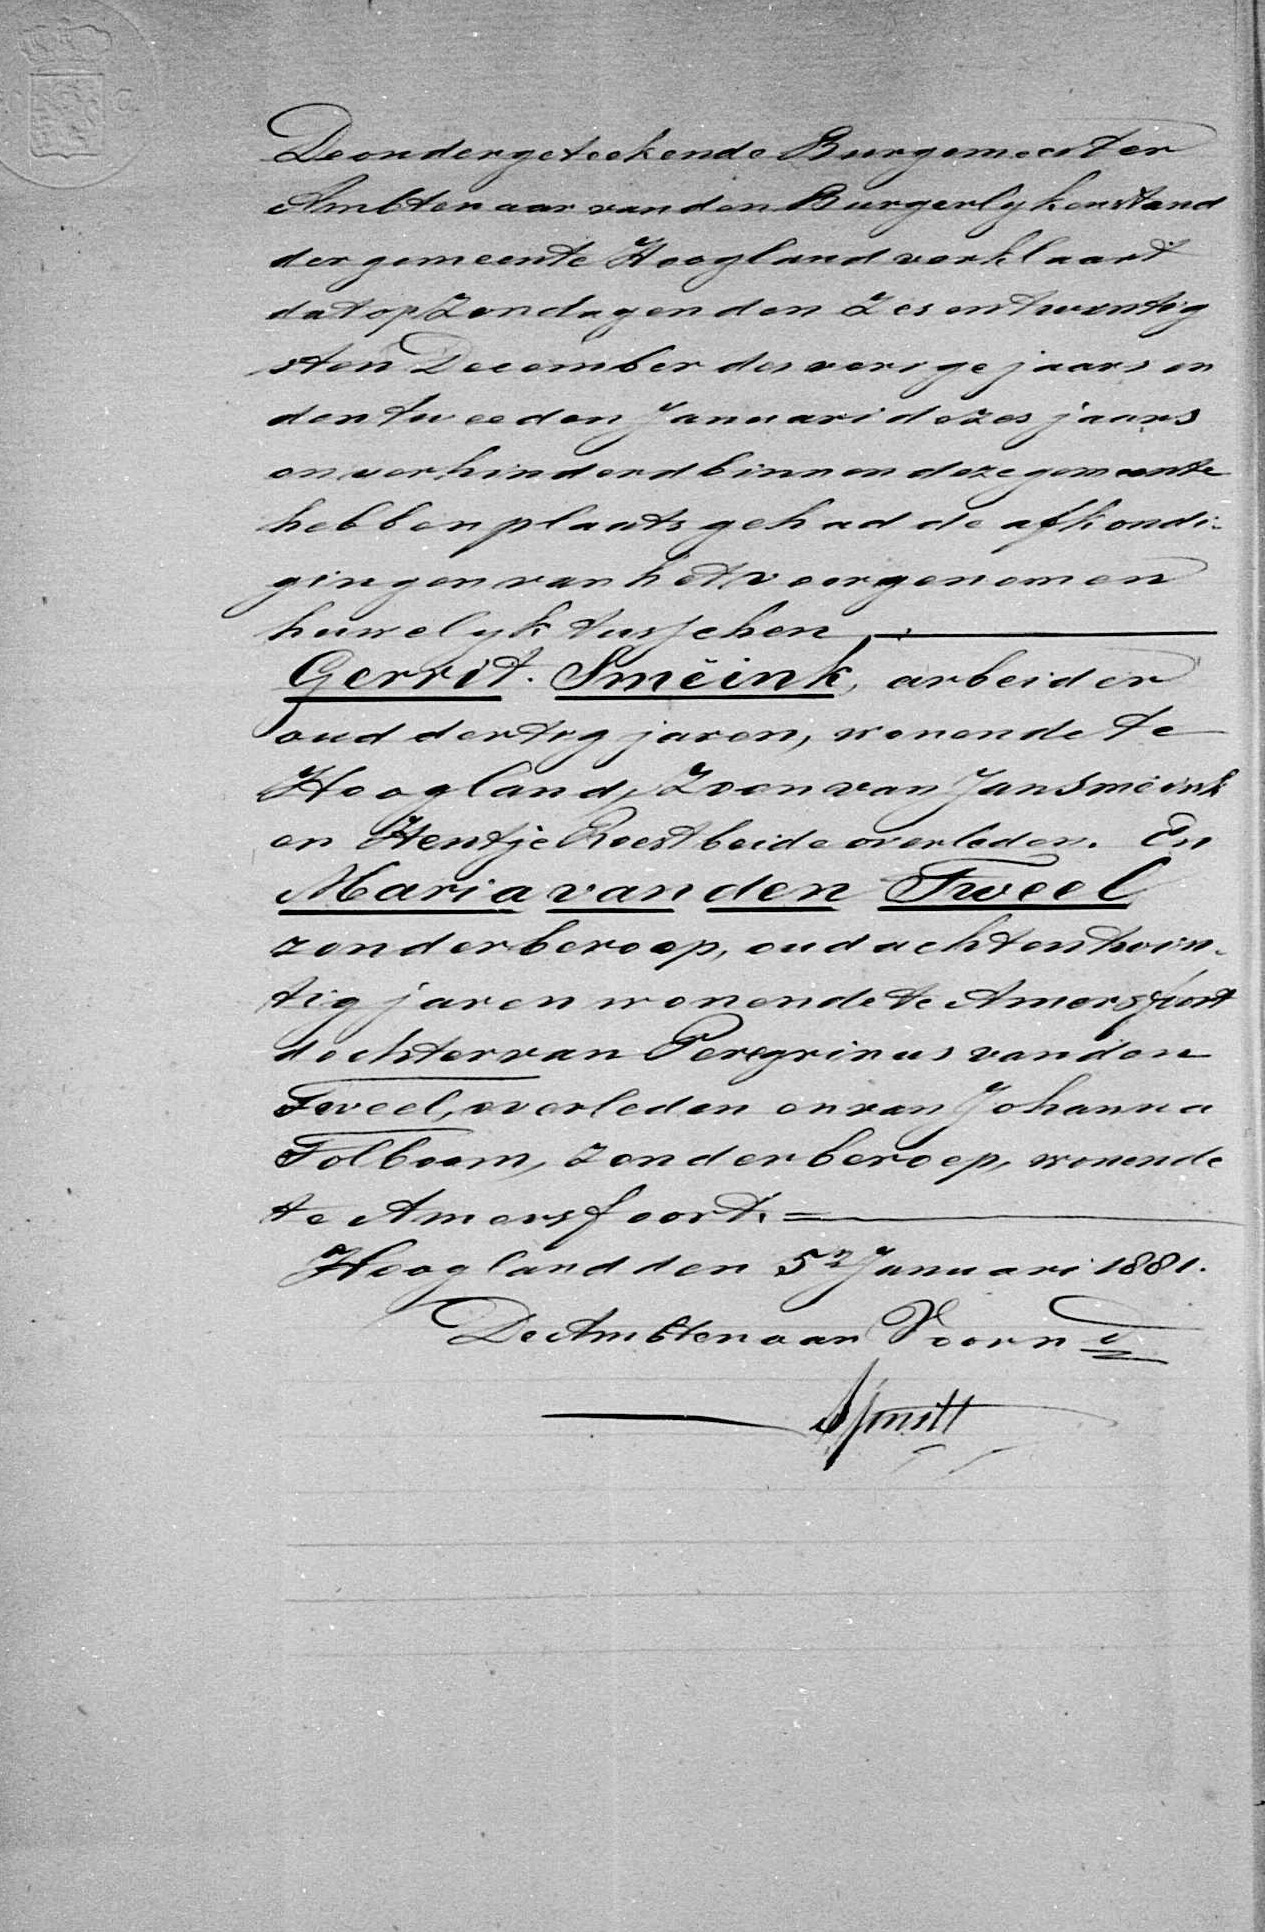 De ondergeteekende Burgemeester
Ambtenaar van den Burgerlyken stand
der gemeente Hoogland verklaart
dat op Zondagen den Zes en twintig
sten December des vorige jaars en
den tweeden Januari dezes jaars
onverhinderd binnen deze gemeente
hebben plaats gehad de afkondi-
gingen van het voorgenomen
huwelyk tusschen
Gerrit Smeïnk, arbeider
oud dertig jaren, wonende te
Hoogland, Zoon van Jan Smeïnk
en Hentje Roest beide overleden. En
Maria van den Tweel
zonder beroep, oud acht en twin-
tig jaren wonende te Amersfoort
dochter van Peregrinus van den
Tweel, overleden en van Johanna
Tolboom, zonder beroep, wonende
te Amersfoort.
Hoogland den 5n Januari 1881.
De Ambtenaar Voornd